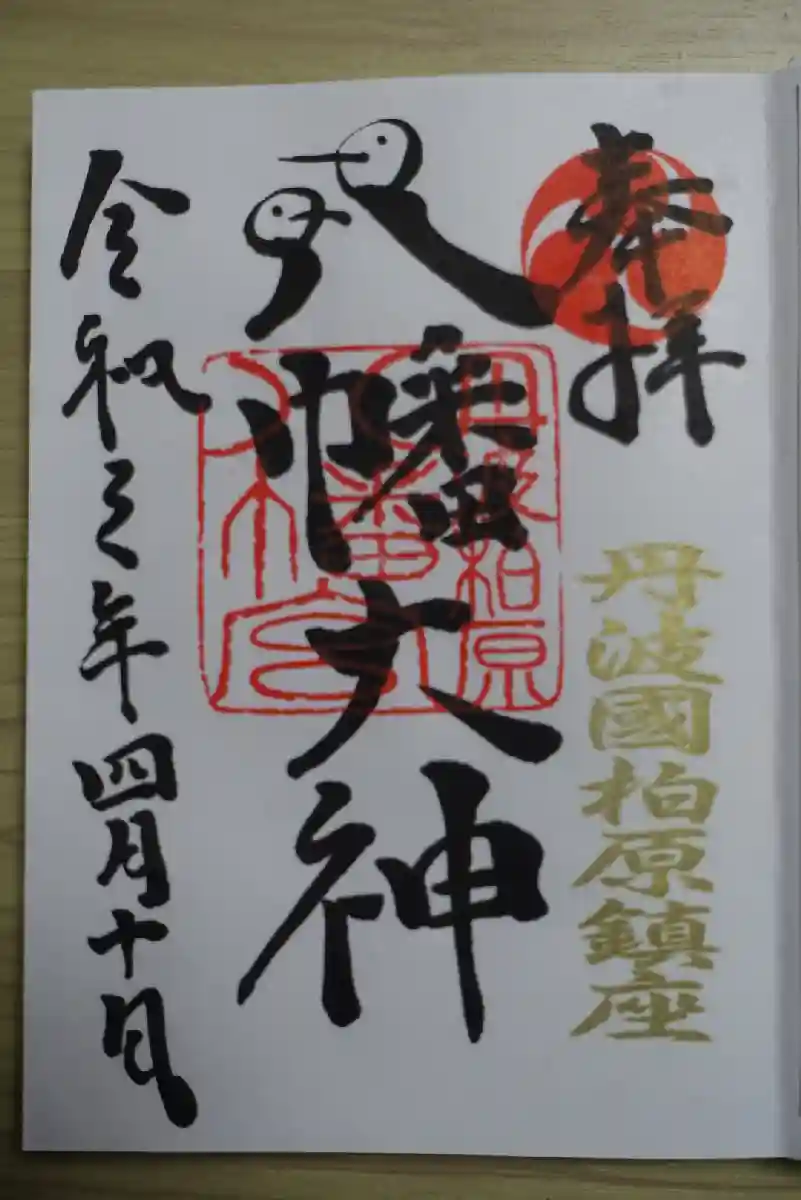 奉拝
丹波國柏原鎮座
八幡大神
丹波柏原
八幡宮
令和三年四月十日